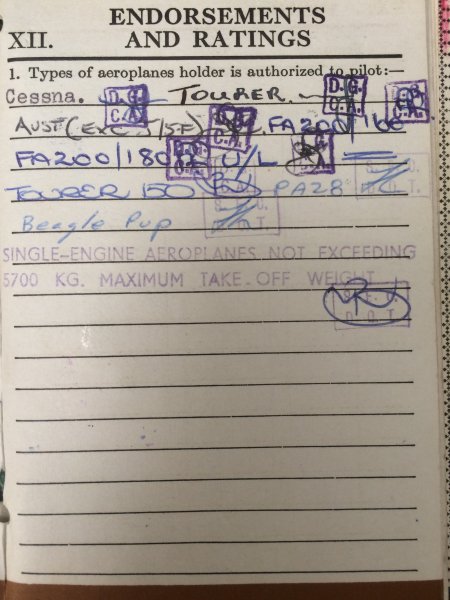 XII. ENDORSEMENTS AND RATINGS
1. Types of aeroplanes holder is authorized to pilot:—
Cessna. D.G. C.A. TOURER D.G. C.A.
AUST (EXC J/5F) C.A. FA200/160
FA200/180 U/L
TOURER 150 PA28 D.O.T.
Beagle Pup
SINGLE-ENGINE AEROPLANES NOT EXCEEDING
5700 KG. MAXIMUM TAKE-OFF WEIGHT
D.O.T.